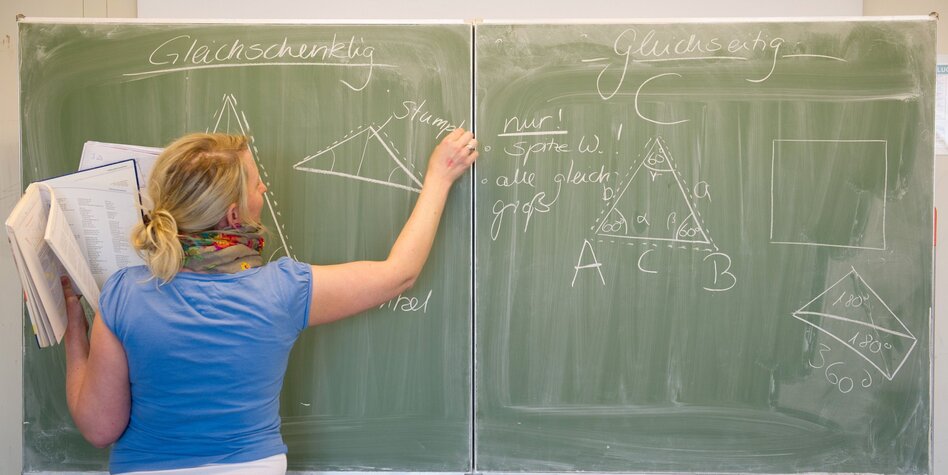 Gleichschenklig
Gleichseitig
nur!
• spitze W. !
• alle gleich
groß
C
60°
γ
b
a
60°
α
β
60°
A
C
B
180°
180°
360°